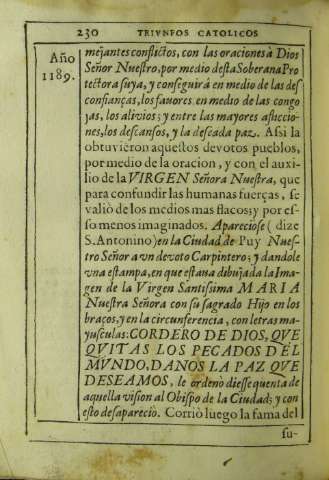 230 TRIVNFOS CATOLICOS
Año
1189.
mejantes conflictos, con las oraciones à Dios
Señor Nuestro, por medio desta Soberana Pro
tectora suya, y conseguirà en medio de las des
confianças, los fauores en medio de las congo
jas, los alivios; y entre las mayores afliccio-
nes, los descansos, y la deseada paz. Assi la
obtuvieron aquestos devotos pueblos,
por medio de la oracion, y con el auxi-
lio de la VIRGEN Señora Nuestra, que
para confundir las humanas fuerças, se
valiò de los medios mas flacos; y por es-
so menos imaginados. Apareciose (dize
S. Antonino) en la Ciudad de Puy Nues-
tro Señor a vn devoto Carpintero; y dandole
vna estampa, en que estaua dibujada la Ima-
gen de la Virgen Santissima MARIA
Nuestra Señora con su sagrado Hijo en los
braços, y en la circunferencia, con letras ma-
yusculas: CORDERO DE DIOS, QVE
QVITAS LOS PECADOS DEL
MVNDO, DANOS LA PAZ QVE
DESEAMOS, le ordenò diesse quenta de
aquella vision al Obispo de la Ciudad; y con
esto desapareciò. Corriò luego la fama del
su-